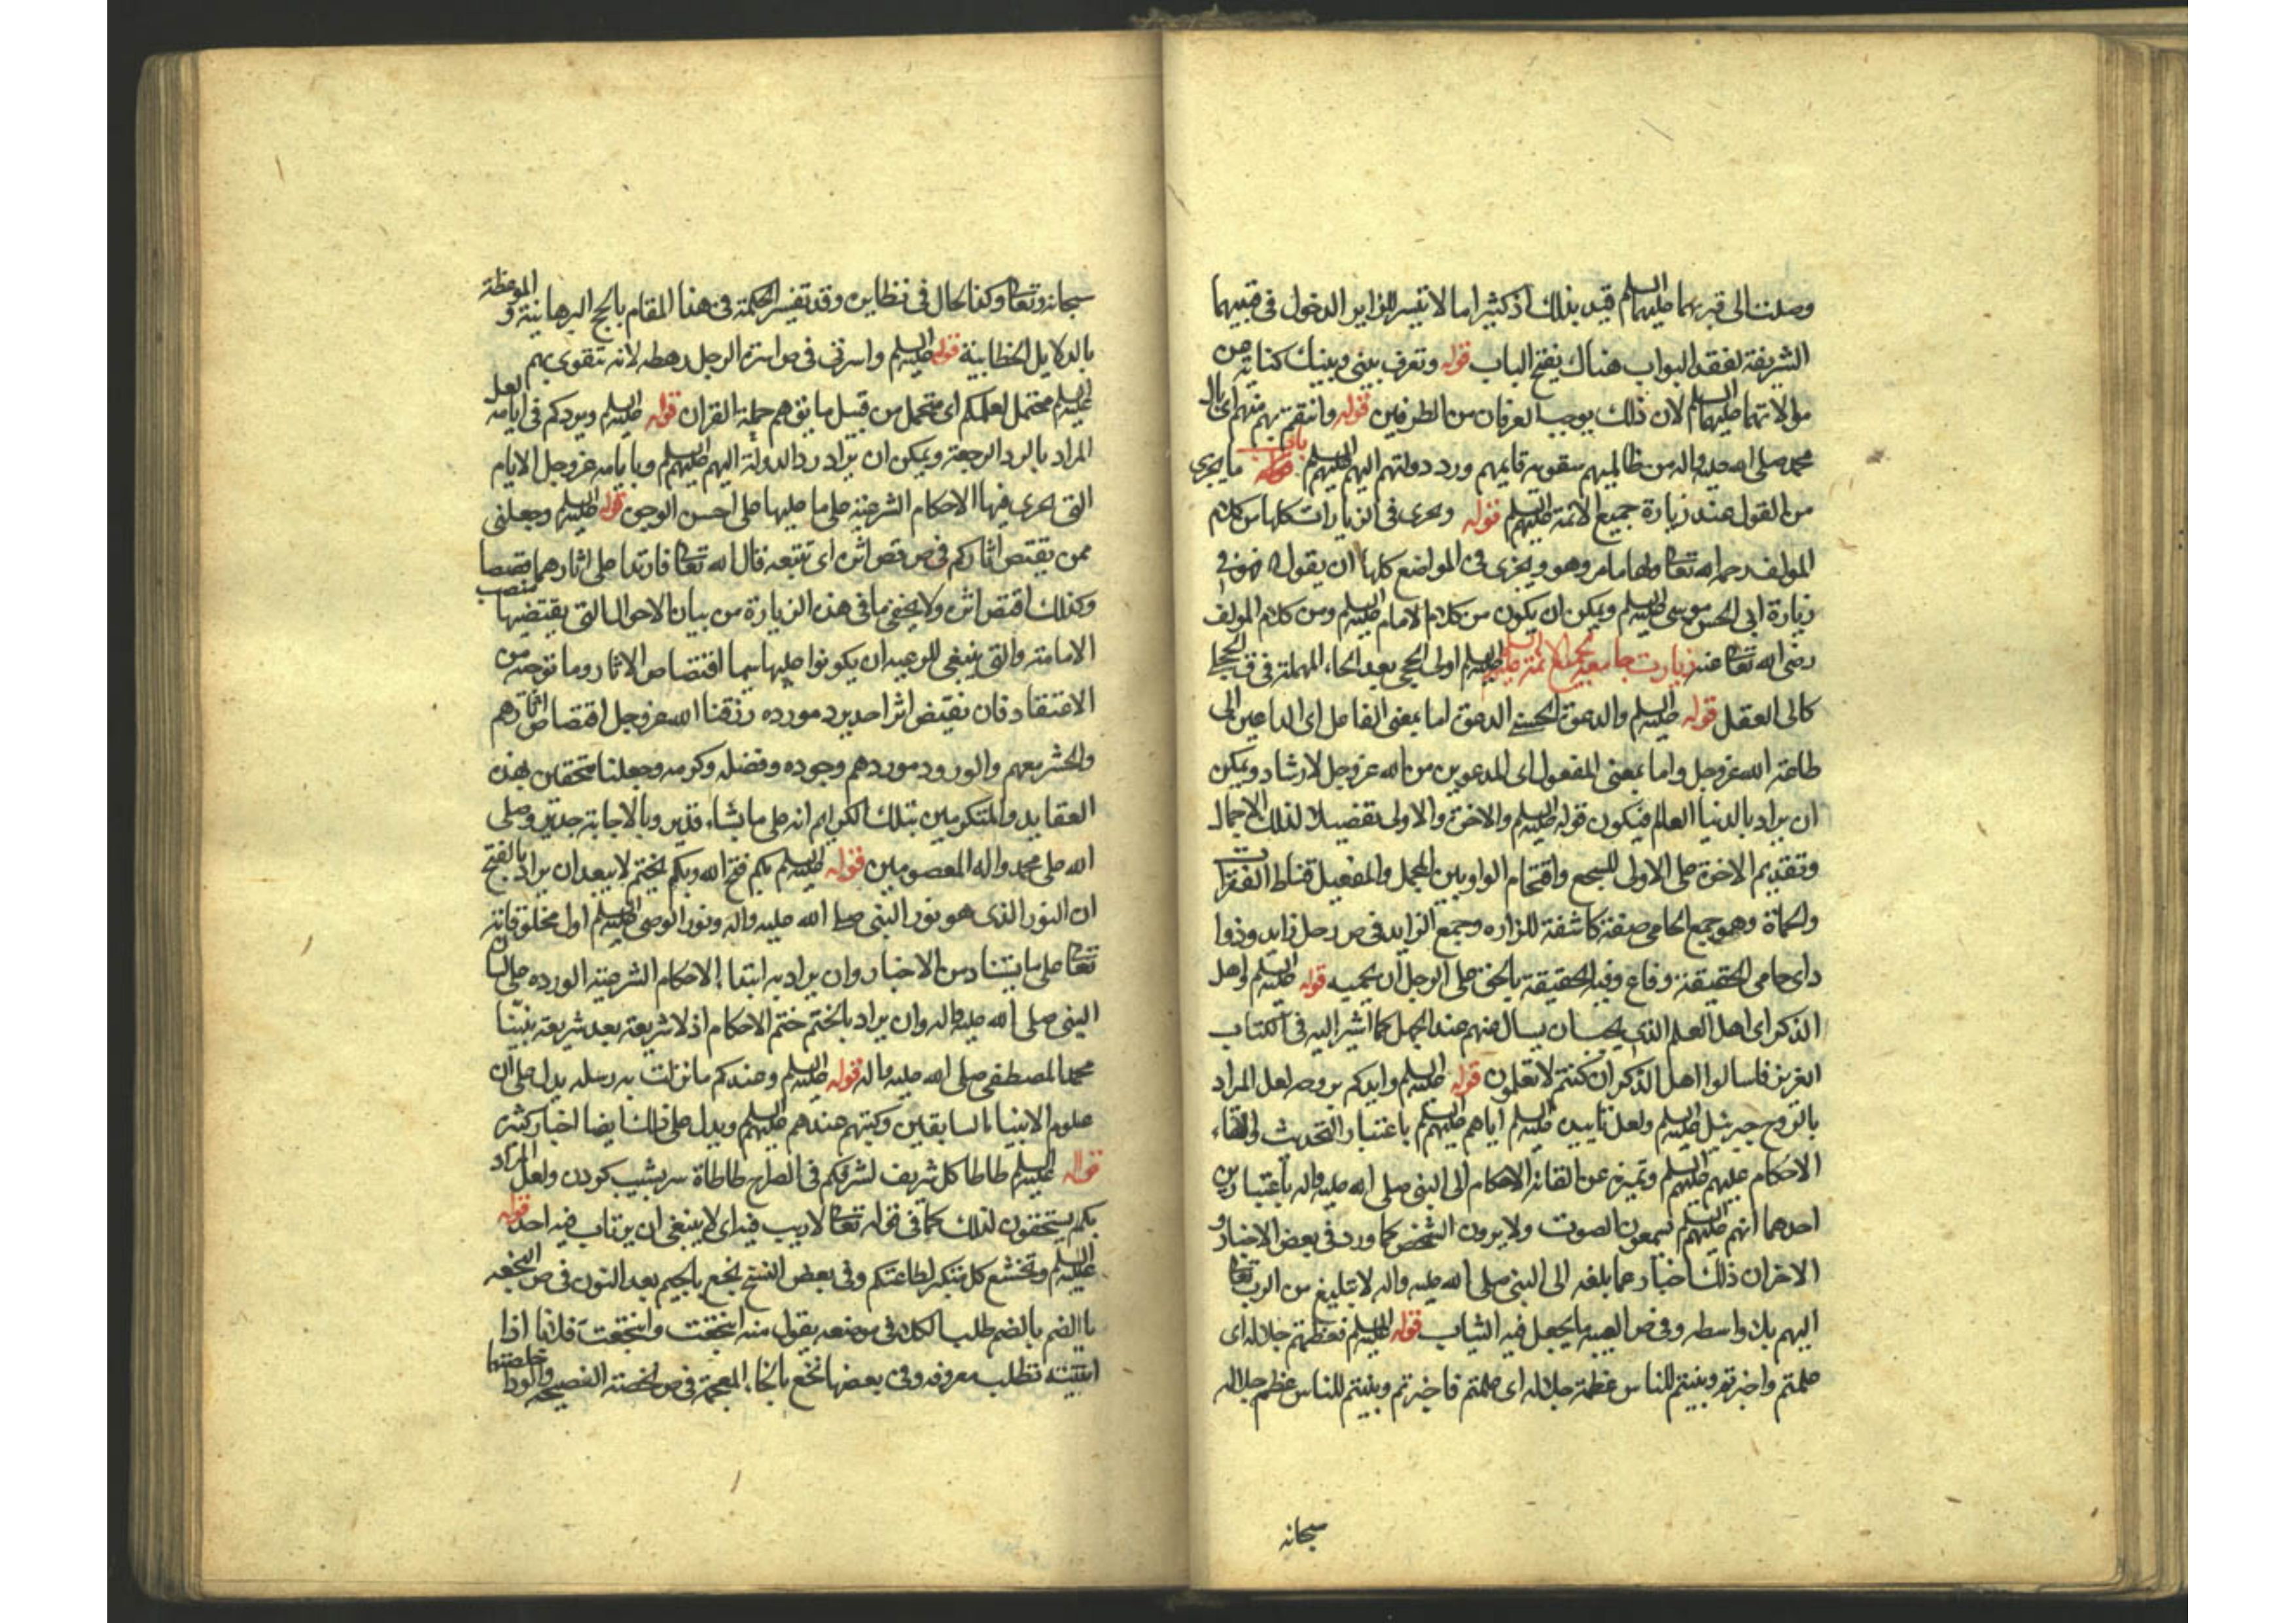 وصلت الى قبريهما عليهما السلم قيد بذلك اذ كثيرا ما لا تيسر للزاير الدخول فى قبتيهما
الشريفة لفقد البواب هناك يفتح الباب قوله وتعرف بينى وبينك كناية من
موالاتهما عليهما السلم لان ذلك يوجب العرفان من الطرفين قوله وانتقم بهم منهم اى بال
محمد صلى الله عليه واله من ظالميهم بتقوية قايمهم ورد دولتهم اليهم عليهم السلم باب ما يجزى
من القول عند زيارة جميع الائمة عليهم السلم قوله ويجزى فى الزيارات كلها من كلام
المولف رحمه الله تعالى ولها ما مر وهو ويجزى فى المواضع كلها ان يقول فهو فى
زيارة ابى الحسن موسى عليه السلم ويمكن ان يكون من كلام الامام عليه السلم ومن كلام المولف
رضى الله تعالى عنه زيارت جامعه لجميع الائمة عليهم السلم اولى الحجى بعد الحاء المهملة فى ق الحجا
كالى العقل قوله عليه السلم والدعوة الحسنى الدعوة اما بمعنى الفاعل اى الداعين الى
طاعة الله عز وجل واما بمعنى المفعول اى المدعوين من الله عز وجل لارشاد ويمكن
ان يراد بالدنيا العالم فيكون قوله عليه السلم والاخرة والاولى تفصيلا لذلك الاجمال
وتقديم الاخرة على الاولى للسجع واقتحام الواو بين المجمل والمفصل قناط الفقرات
والحماة وهو جمع الحامى صفة كاشفة للزاده وجمع الزايد فى ص رجل زايد وذواد
اى حامى الحقيقة دفاع وفيه الحقيقة ما يحق على الرجل ان يحميه قوله عليه السلم واهل
الذكر اى اهل العلم الذى يجب ان يسال عنهم عند الجهل كما اشير اليه فى الكتاب
العزيز فاسالوا اهل الذكر ان كنتم لا تعلمون قوله عليه السلم وايدكم بروحه لعل المراد
بالروح جبرئيل عليه السلم ولعل تاييده عليه السلم اياهم عليهم السلم باعتبار التحديث والقاء
الاحكام عليهم عليهم السلم وتميزه عن القائه الاحكام الى النبى صلى الله عليه واله باعتبارين
احدهما انهم عليهم السلم يسمعون الصوت ولا يرون الشخص كما ورد فى بعض الاخبار و
الاخر ان ذلك اخبارهما بلغه الى النبى صلى الله عليه واله لا تبليغ من الرب تعالى
اليهم بلا واسطه وفى ص العيبه ما يجعل فيه الثياب قوله عليه السلم فعظمتم جلاله اى
علمتم واخبرتم وبينتم للناس عظمة جلاله اى علمتم فاخبرتم وبينتم للناس عظم جلاله
سبحانه
سبحانه وتعالى وكذا الحال فى نظايره وقد تفسر الحكمة فى هذا المقام بالحجج البرهانية و الموعظة
بالدلايل الخطابية قوله عليه السلم واسرتى فى ص اسرة الرجل رهطه لانه تتقوى بهم
عليه السلم محتمل لعلمكم اى متحمل من قبيل ما يق هم حملة القران قوله عليه السلم ويردكم فى ايامه لعل
المراد بالرد الرجعة ويمكن ان يراد رد الدولة اليهم عليهم السلم وبايامه عز وجل الايام
التى يجرى فيها الاحكام الشرعية على ما عليها على احسن الوجوه قوله عليه السلم وجعلنى
ممن يقتص اثاركم فى ص قص اثره اى تتبعه قال الله تعالى فارتدا على اثارهما قصصا
وكذلك اقتص اثره ولا يخفى ما فى هذه الزيارة من بيان الاحوال التى يقتضيها منصب
الامامة والتى ينبغى للرعية ان يكونوا عليها سيما اقتصاص الاثار وما توجبه من
الاعتقاد فان من يقتص اثر احد يرد مورده رزقنا الله عز وجل اقتصاص اثارهم
والحشر معهم والورود موردهم وجوده وفضله وكرمه وجعلنا متحققين بهذه
العقايد والمتكرمين بتلك الكرايم انه على ما يشاء قدير وبالاجابة جدير وصلى
الله على محمد واله المعصومين قوله عليه السلم بكم فتح الله وبكم يختم لا يبعد ان يراد بالفتح
ان النور الذى هو نور النبى صلى الله عليه واله ونور الوصى عليه السلم اول مخلوقاته
تعالى على ما يستفاد من الاخبار وان يراد به ابتداء الاحكام الشرعية الوارده على لسان
النبى صلى الله عليه واله وان يراد بالختم ختم الاحكام اذ لا شريعة بعد شريعة نبينا
محمد المصطفى صلى الله عليه واله قوله عليه السلم وعندكم ما نزلت به رسله يدل على ان
علوم الانبياء السابقين وكتبهم عندهم عليهم السلم ويدل على ذلك ايضا اخبار كثيرة
قوله عليه السلم طاطا كل شريف لشرفكم فى الصراح طاطاة سر بشيب كردن ولعل المراد
بكم يستحقون لذلك كما فى قوله تعالى لا ريب فيه اى لا ينبغى ان يرتاب فيه احد قوله
عليه السلم وتخشع كل متكبر لطاعتكم وفى بعض النسخ نجع بالجيم بعد النون فى ص النجعه
بالضم طلب الكلاء فى موضعه يقول منه انتجعت وانتجعت فلانا اذا
اتيته تطلب معروفه وفى بعضها نخع بالخاء المعجمة فى ص نخعته النصيحه والود اخلصتهما